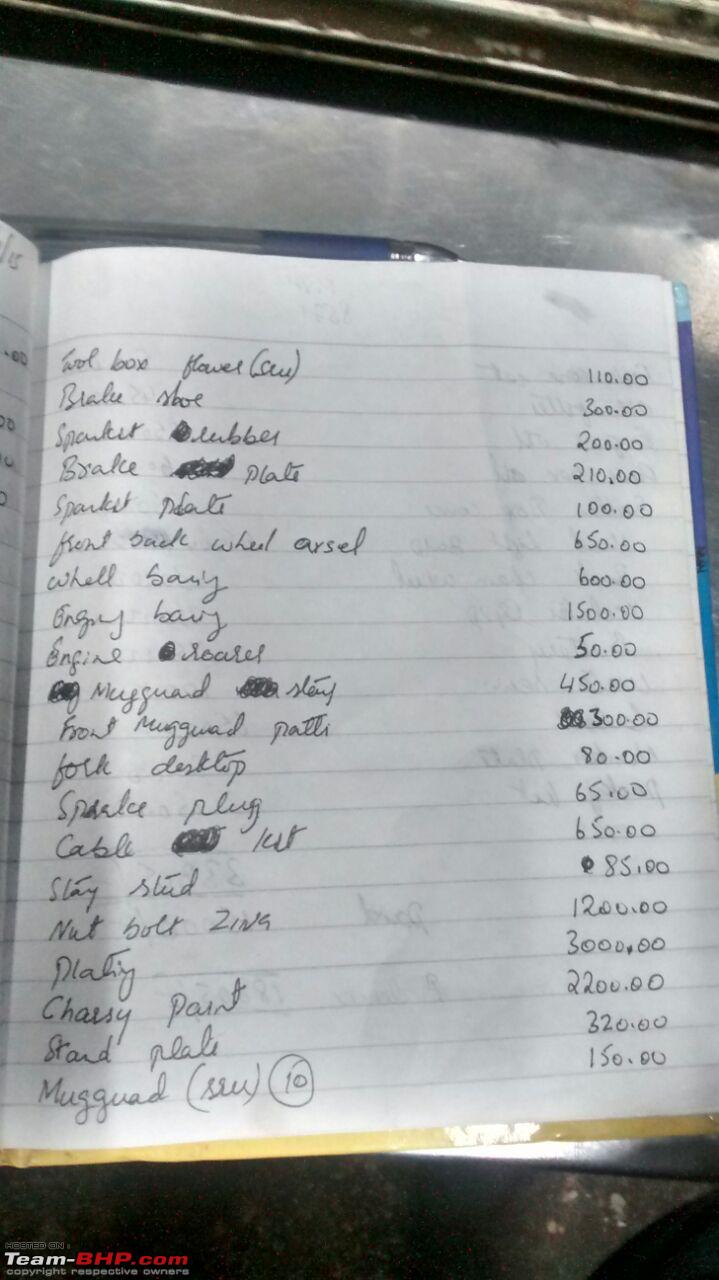 Tool box flower (seu) 110.00
Brake shoe 300.00
Sparket rubber 200.00
Brake plate 210.00
Sparkit plate 100.00
front back wheel arsel 650.00
whell bariy 600.00
Engny bariy 1500.00
Engine 50.00
Mugguard stay 450.00
Front Mugguad patti 300.00
fork desktop 80.00
Sparke plug 65.00
Cable kit 650.00
Stay stud 85.00
Nut bolt Zing 1200.00
Platiy 3000.00
Chassy Paint 2200.00
Stand plate 320.00
Mugguad (seu) 10 150.00
HOSTED ON :
Team-BHP.com
copyright respective owners